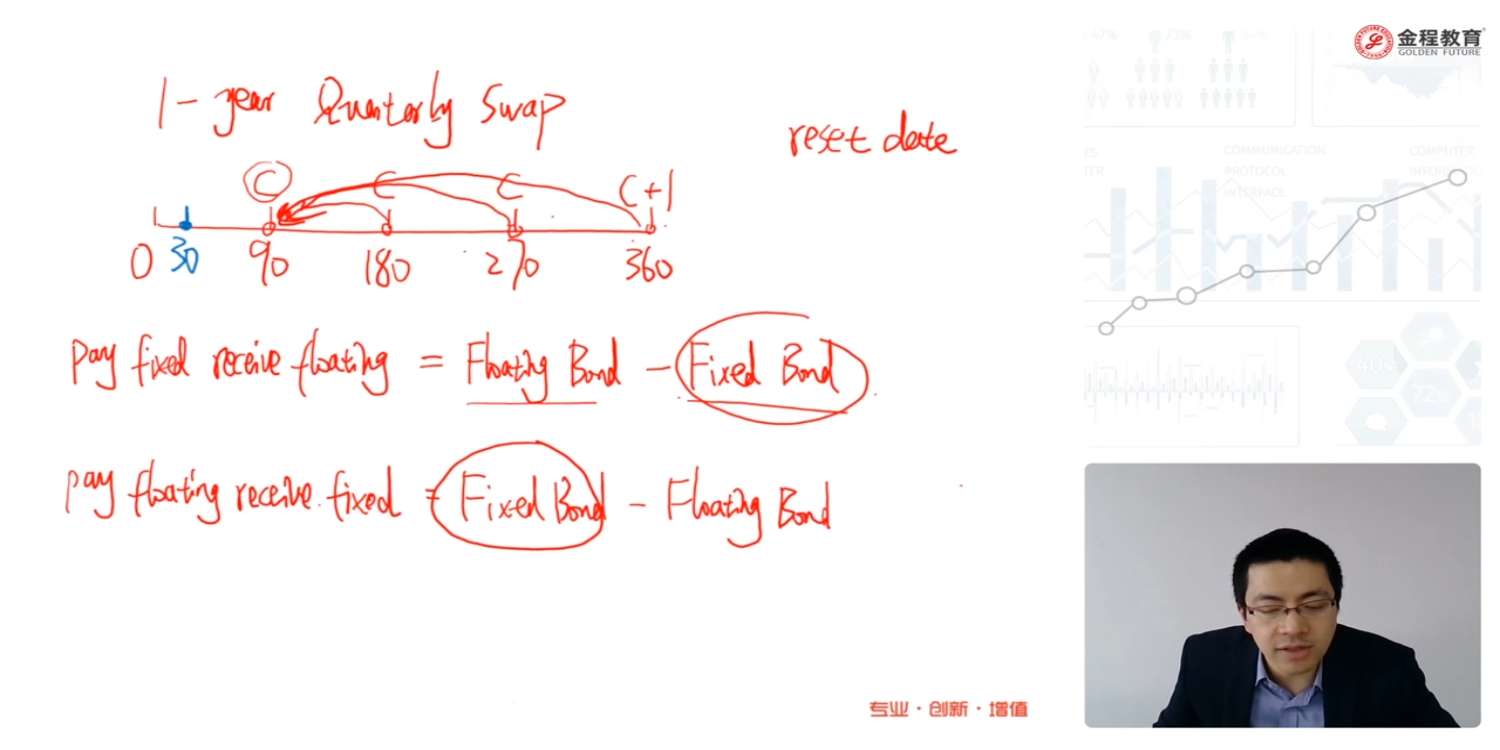 金程教育
GOLDEN FUTURE
1-year Quarterly Swap
reset date
C C C C+1
0 30 90 180 270 360
pay fixed receive floating = Floating Bond - Fixed Bond
pay floating receive fixed = Fixed Bond - Floating Bond
COMMUNICATION
PROTOCOL
INTERFACE
COMPUTER
专业·创新·增值